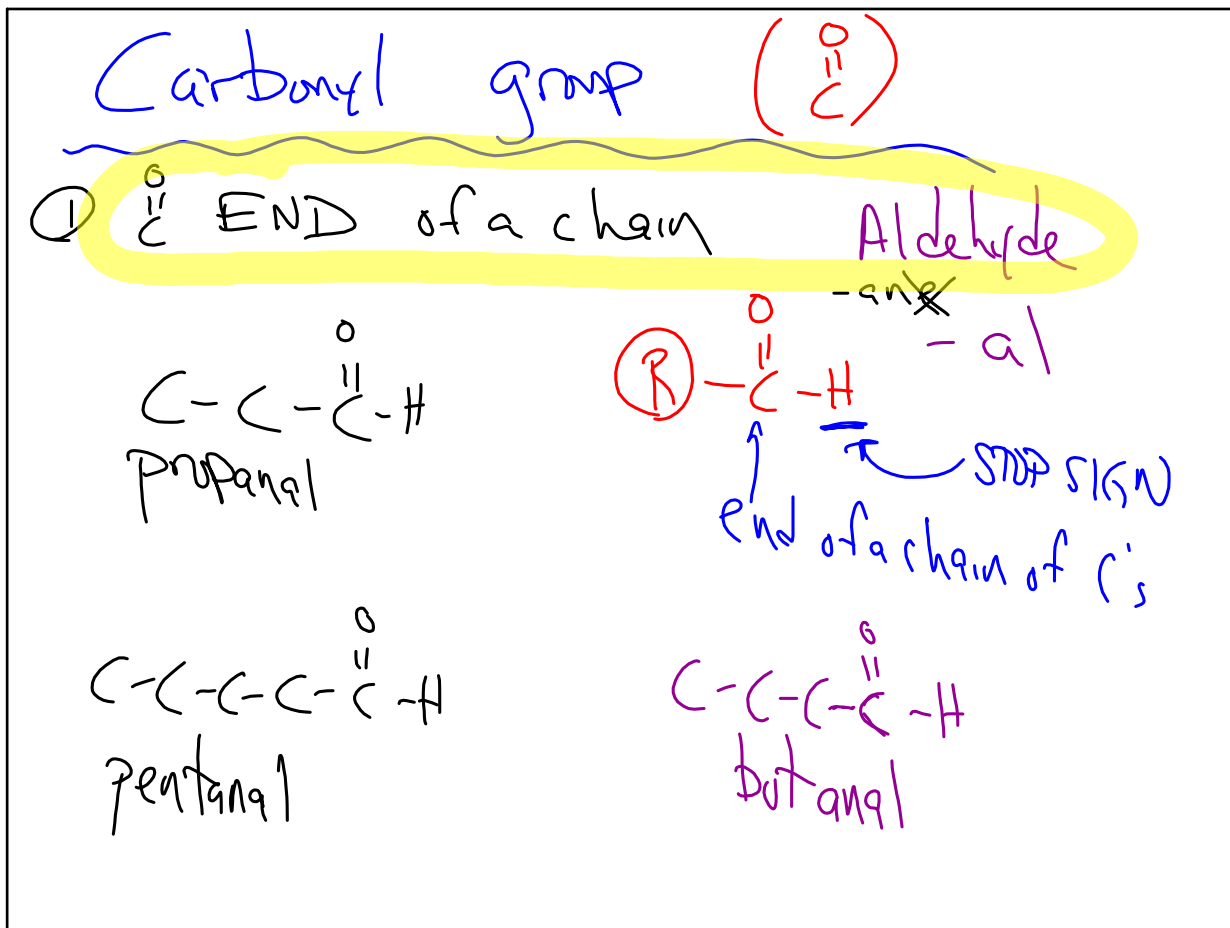 Carbonyl group (O
=
C)
① O
=
C END of a chain Aldehyde
-ane
- al
O
=
C - C - C - H
propanal
O
=
R - C - H
STOP SIGN
end of a chain of C's
O
=
C - C - C - C - C - H
pentanal
O
=
C - C - C - C - H
butanal